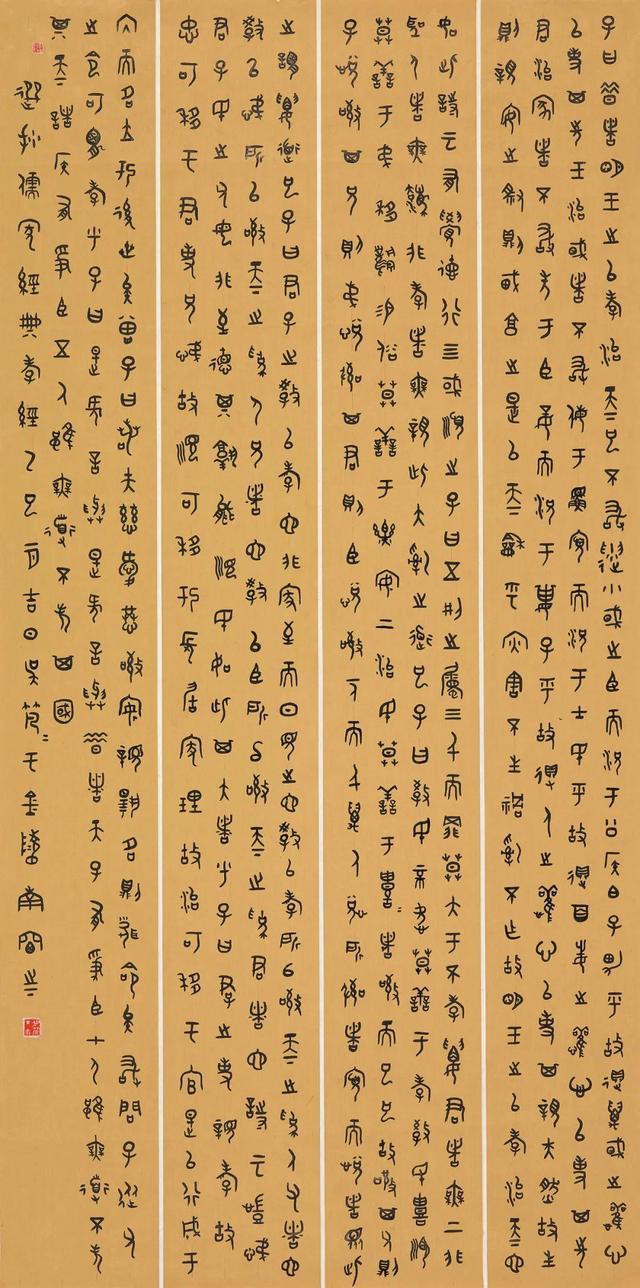 子曰昔者明王之以孝治天下也不敢遺小國之臣而況于公侯伯子男乎故得萬國之懽心
以事其先王治國者不敢侮于鰥寡而況于士民乎故得百姓之懽心以事其先
君治家者不敢失于臣妾而況于妻子乎故得人之懽心以事其親夫然故生
則親安之祭則鬼享之是以天下和平災害不生禍亂不作故明王之以孝治天下也
如此詩云有覺德行四國順之子曰五刑之屬三千而罪莫大于不孝要君者無上非
聖人者無法非孝者無親此大亂之道也子曰教民親愛莫善于孝教民禮順
莫善于悌移風易俗莫善于樂安上治民莫善于禮禮者敬而已矣故敬其父則
子悅敬其兄則弟悅敬其君則臣悅敬一人而千萬人悅所敬者寡而悅者眾此
之謂要道也子曰君子之教以孝也非家至而日見之也教以孝所以敬天下之為人父者也
教以悌所以敬天下之為人兄者也教以臣所以敬天下之為人君者也詩云愷悌
君子民之父母非至德其孰能順民如此其大者乎子曰君子之事親孝故
忠可移于君事兄悌故順可移于長居家理故治可移于官是以行成于
內而名立于後世矣曾子曰若夫慈愛恭敬安親揚名則聞命矣敢問子從父
之令可謂孝乎子曰是何言與是何言與昔者天子有爭臣七人雖無道不失
其天下諸侯有爭臣五人雖無道不失其國
選抄儒家經典孝經乙巳月吉日吳于金陵南窗之下